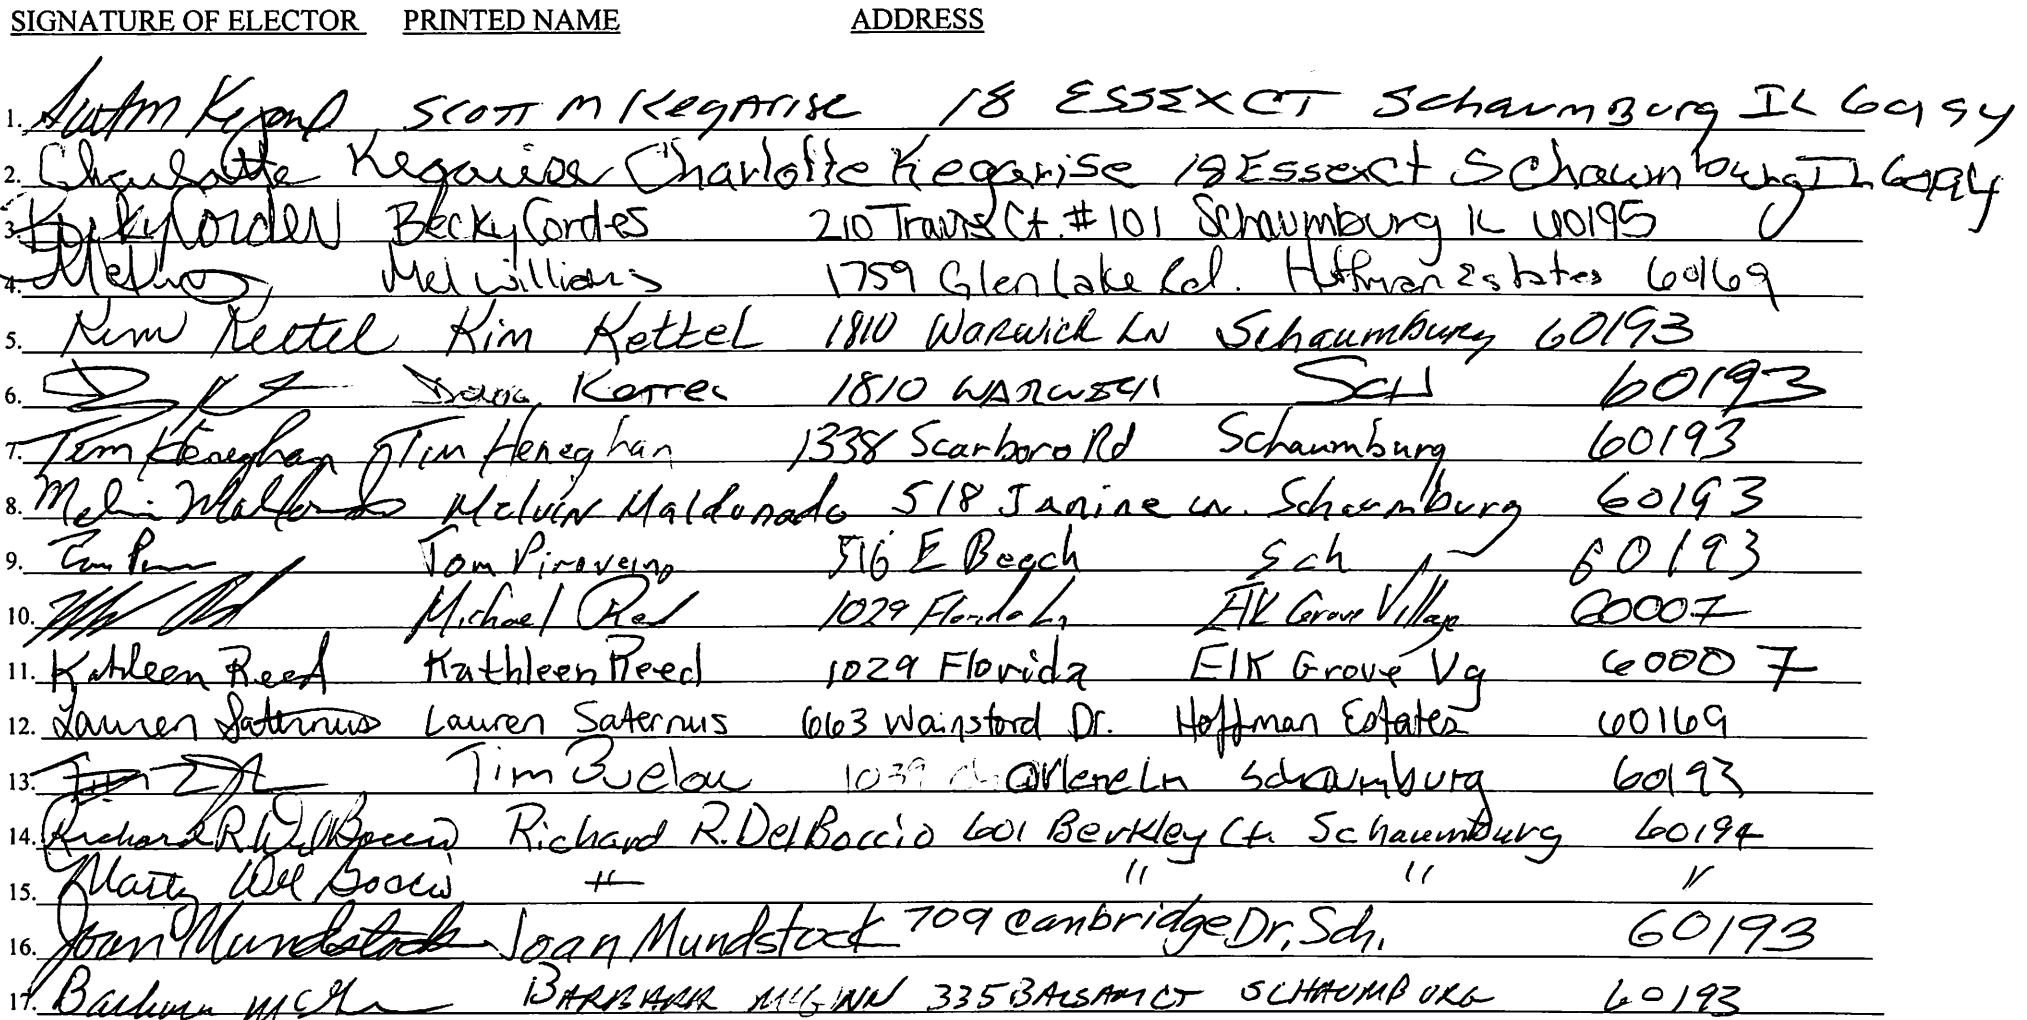 SIGNATURE OF ELECTOR PRINTED NAME ADDRESS
1. SCOTT M KegArise 18 ESSEX CT Schaumburg IL
2. Charlotte Kegarise Charlotte Kegarise 18 Essex Ct Schaumburg IL
3. Becky Cordes Becky Cordes 210 Travis Ct. # 101 Schaumburg IL 60195
4. Mel Williams 1759 Glen Lake Rd. Hoffman Estates 60169
5. Kim Kettel Kim Kettel 1810 Warwick Ln Schaumburg 60193
6. 1810 Sch 60193
7. Tim Heneghan Tim Heneghan 1338 Scarboro Rd Schaumburg 60193
8. Melvin Maldonado Melvin Maldonado 518 Janine Ln. Schaumburg 60193
9. Tom Piraveino 516 E Beech Sch 60193
10. Michael Reed 1029 Florida Ln Elk Grove Village 60007
11. Kathleen Reed Kathleen Reed 1029 Florida Elk Grove Vg 60007
12. Lauren Saternus Lauren Saternus 663 Wainsford Dr. Hoffman Estates 60169
13. Tim Buelow 1039 Charlene Ln Schaumburg 60193
14. Richard R. DelBoccio Richard R. DelBoccio 601 Berkley Ct. Schaumburg 60194
15. Marty Del Boccio " " " "
16. Joan Mundstock Joan Mundstock 709 Cambridge Dr, Sch. 60193
17. Barbara McGinn BARBARA McGINN 335 BALSAM CT SCHAUMBURG 60193